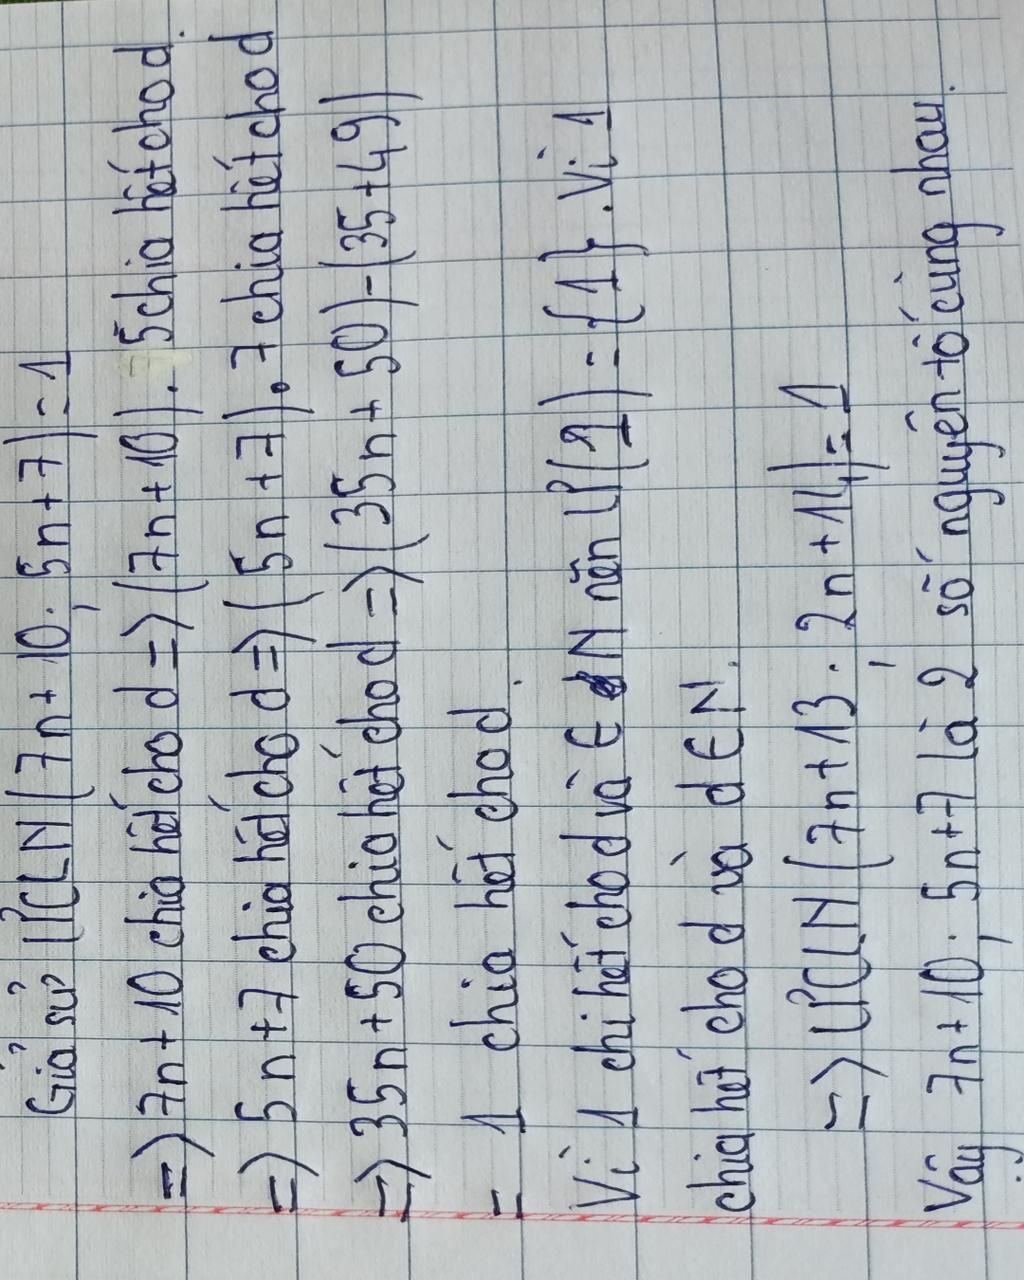 Giả sử ƯCLN (7n + 10; 5n + 7) = 1
=> 7n + 10 chia hết cho d => (7n + 10) . 5 chia hết cho d.
=> 5n + 7 chia hết cho d => (5n + 7) . 7 chia hết cho d
=> 35n + 50 chia hết cho d => (35n + 50) - (35 + 49)
= 1 chia hết cho d.
Vì 1 chi hết cho d và ∈ N nên Ư(1) = {1}. Vì 1
chia hết cho d và d ∈ N.
=> ƯCLN (7n + 13; 2n + 14) = 1
Vậy 7n + 10; 5n + 7 là 2 số nguyên tố cùng nhau.